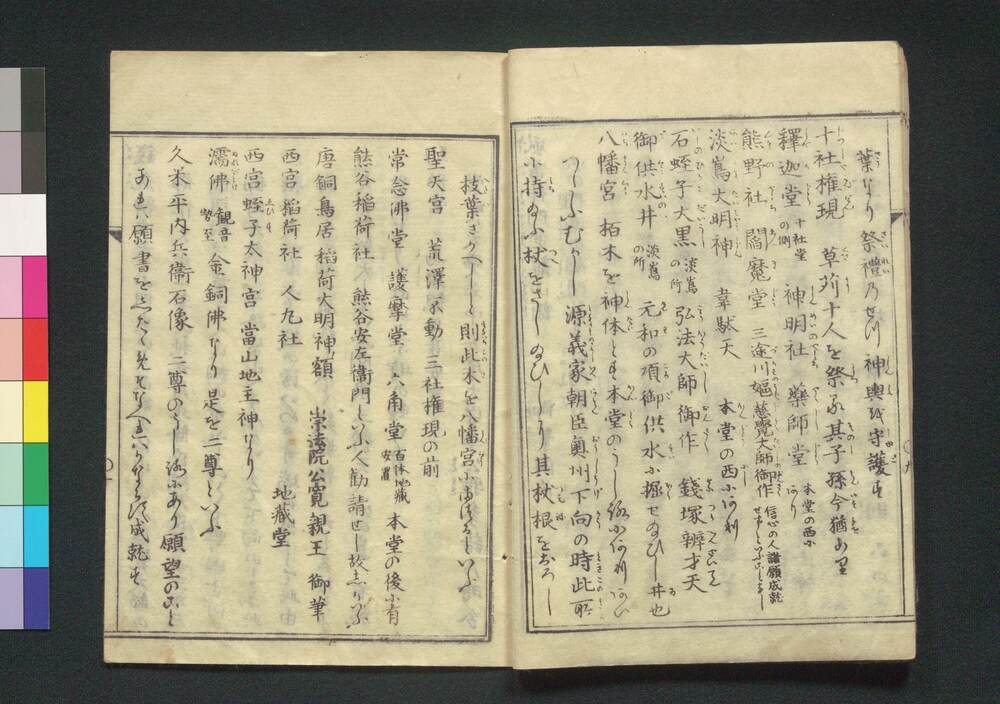 葉なり祭禮のせつ神輿を守護す
十社権現　草苅十人を祭る其子孫今猶あり
釋迦堂 十社堂の側　神明社　薬師堂 本堂の西にあり
熊野社　閻魔堂　三途川嫗 慈覺大師御作 信心の人諸願成就せずといふことなし
淡嶌大明神　韋駄天　本堂の西にあり
石蛭子大黒 淡嶌の所　弘法大師御作　銭塚辨才天
御供水井 淡嶌の所　元和の頃御供水に掘せ給ひし井也
八幡宮　栢木を神体とす本堂のうしろにあり
つたふむかし源義家朝臣奥州下向の時此所
に持給ふ杖をさし給ひしより其杖根をおろし
枝葉さかへし則此木を八幡宮に
聖天宮　荒澤不動　三社権現の前
常念佛堂　護摩堂　六角堂 百体地藏安置　本堂の後に有
熊谷稲荷社　熊谷安左衞門といふ人勧請せし故しかいふ
唐銅鳥居　稲荷大明神額　崇法院公寛親王　御筆
西宮稲荷社　人丸社　地藏堂
西宮蛭子太神宮　當山地主神なり
濡佛 観音勢至　金銅佛なり　足を二尊といふ
久米平内兵衞石像　二尊のうしろにあり願望のこと
あれハ願書をしたゝめ　成就す